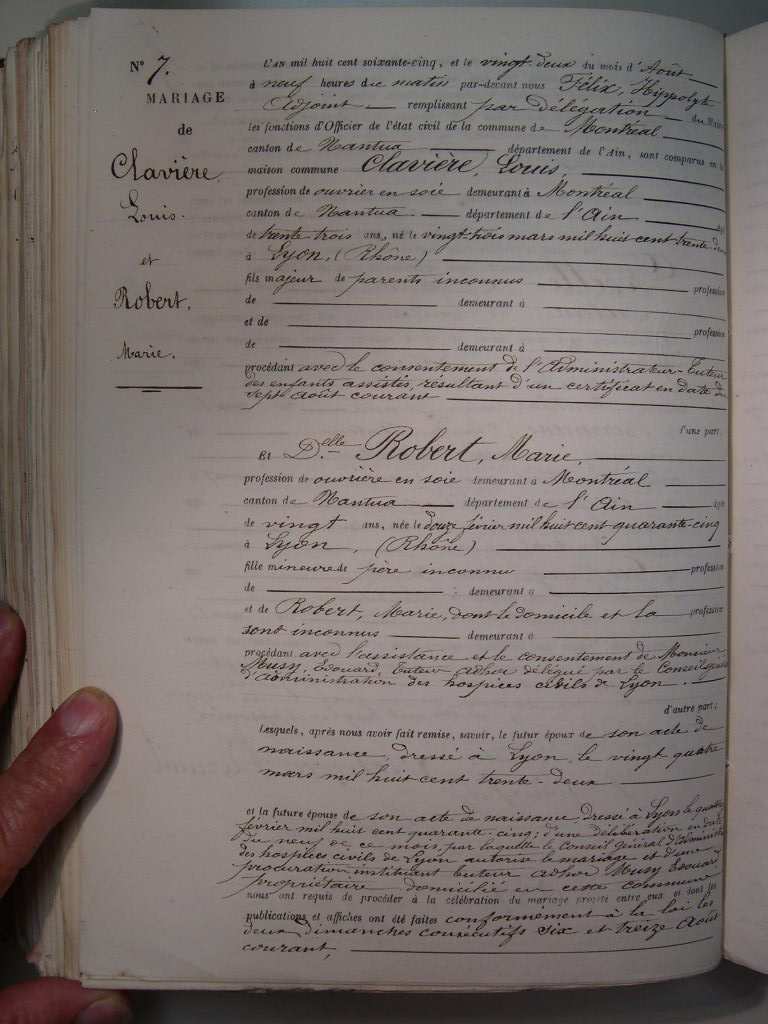 N° 7.
MARIAGE
de
Clavière,
Louis.
et
Robert,
Marie.
L'AN mil huit cent soixante-cinq, et le vingt-deux du mois d'Août
à neuf heures du matin par-devant nous Félix, Hippolyte
Adjoint remplissant par délégation du Maire
les fonctions d'Officier de l'état civil de la commune de Montréal
canton de Nantua département de l'Ain, sont comparus en la
maison commune Clavière, Louis,
profession de ouvrier en soie demeurant à Montréal
canton de Nantua département de l'Ain âgé
de trente trois ans, né le vingt-trois mars mil huit cent trente deux
à Lyon, (Rhône)
fils majeur de parents inconnus profession
de demeurant à
et de profession
de demeurant à
procédant avec le consentement de l'Administrateur-Tuteur
des enfants assistés, résultant d'un certificat en date du
sept Août courant
d'une part.
Et D.elle Robert, Marie,
profession de ouvrière en soie demeurant à Montréal
canton de Nantua département de l'Ain âgée
de vingt ans, née le douze février mil huit cent quarante-cinq
à Lyon, (Rhône)
fille mineure de père inconnu profession
de demeurant à
et de Robert, Marie, dont le domicile et la profession
sont inconnus demeurant à
procédant avec l'assistance et le consentement de Monsieur
Musy, Edouard, tuteur adhoc délégué par le Conseil général
d'administration des hospices civils de Lyon.
d'autre part;
Lesquels, après nous avoir fait remise, savoir, le futur époux de son acte de
naissance, dressé à Lyon, le vingt quatre
mars mil huit cent trente-deux
et la future épouse de son acte de naissance dressé à Lyon le quatorze
février mil huit cent quarante-cinq; d'une délibération en date
du neuf de ce mois, par laquelle le Conseil général d'Administration
des hospices civils de Lyon autorise le mariage et d'une
procuration instituant tuteur adhoc Musy Edouard
propriétaire domicilié en cette commune
nous ont requis de procéder à la célébration du mariage projeté entre eux et dont les
publications et affiches ont été faites conformément à la loi les
deux dimanches consécutifs six et treize Août
courant,